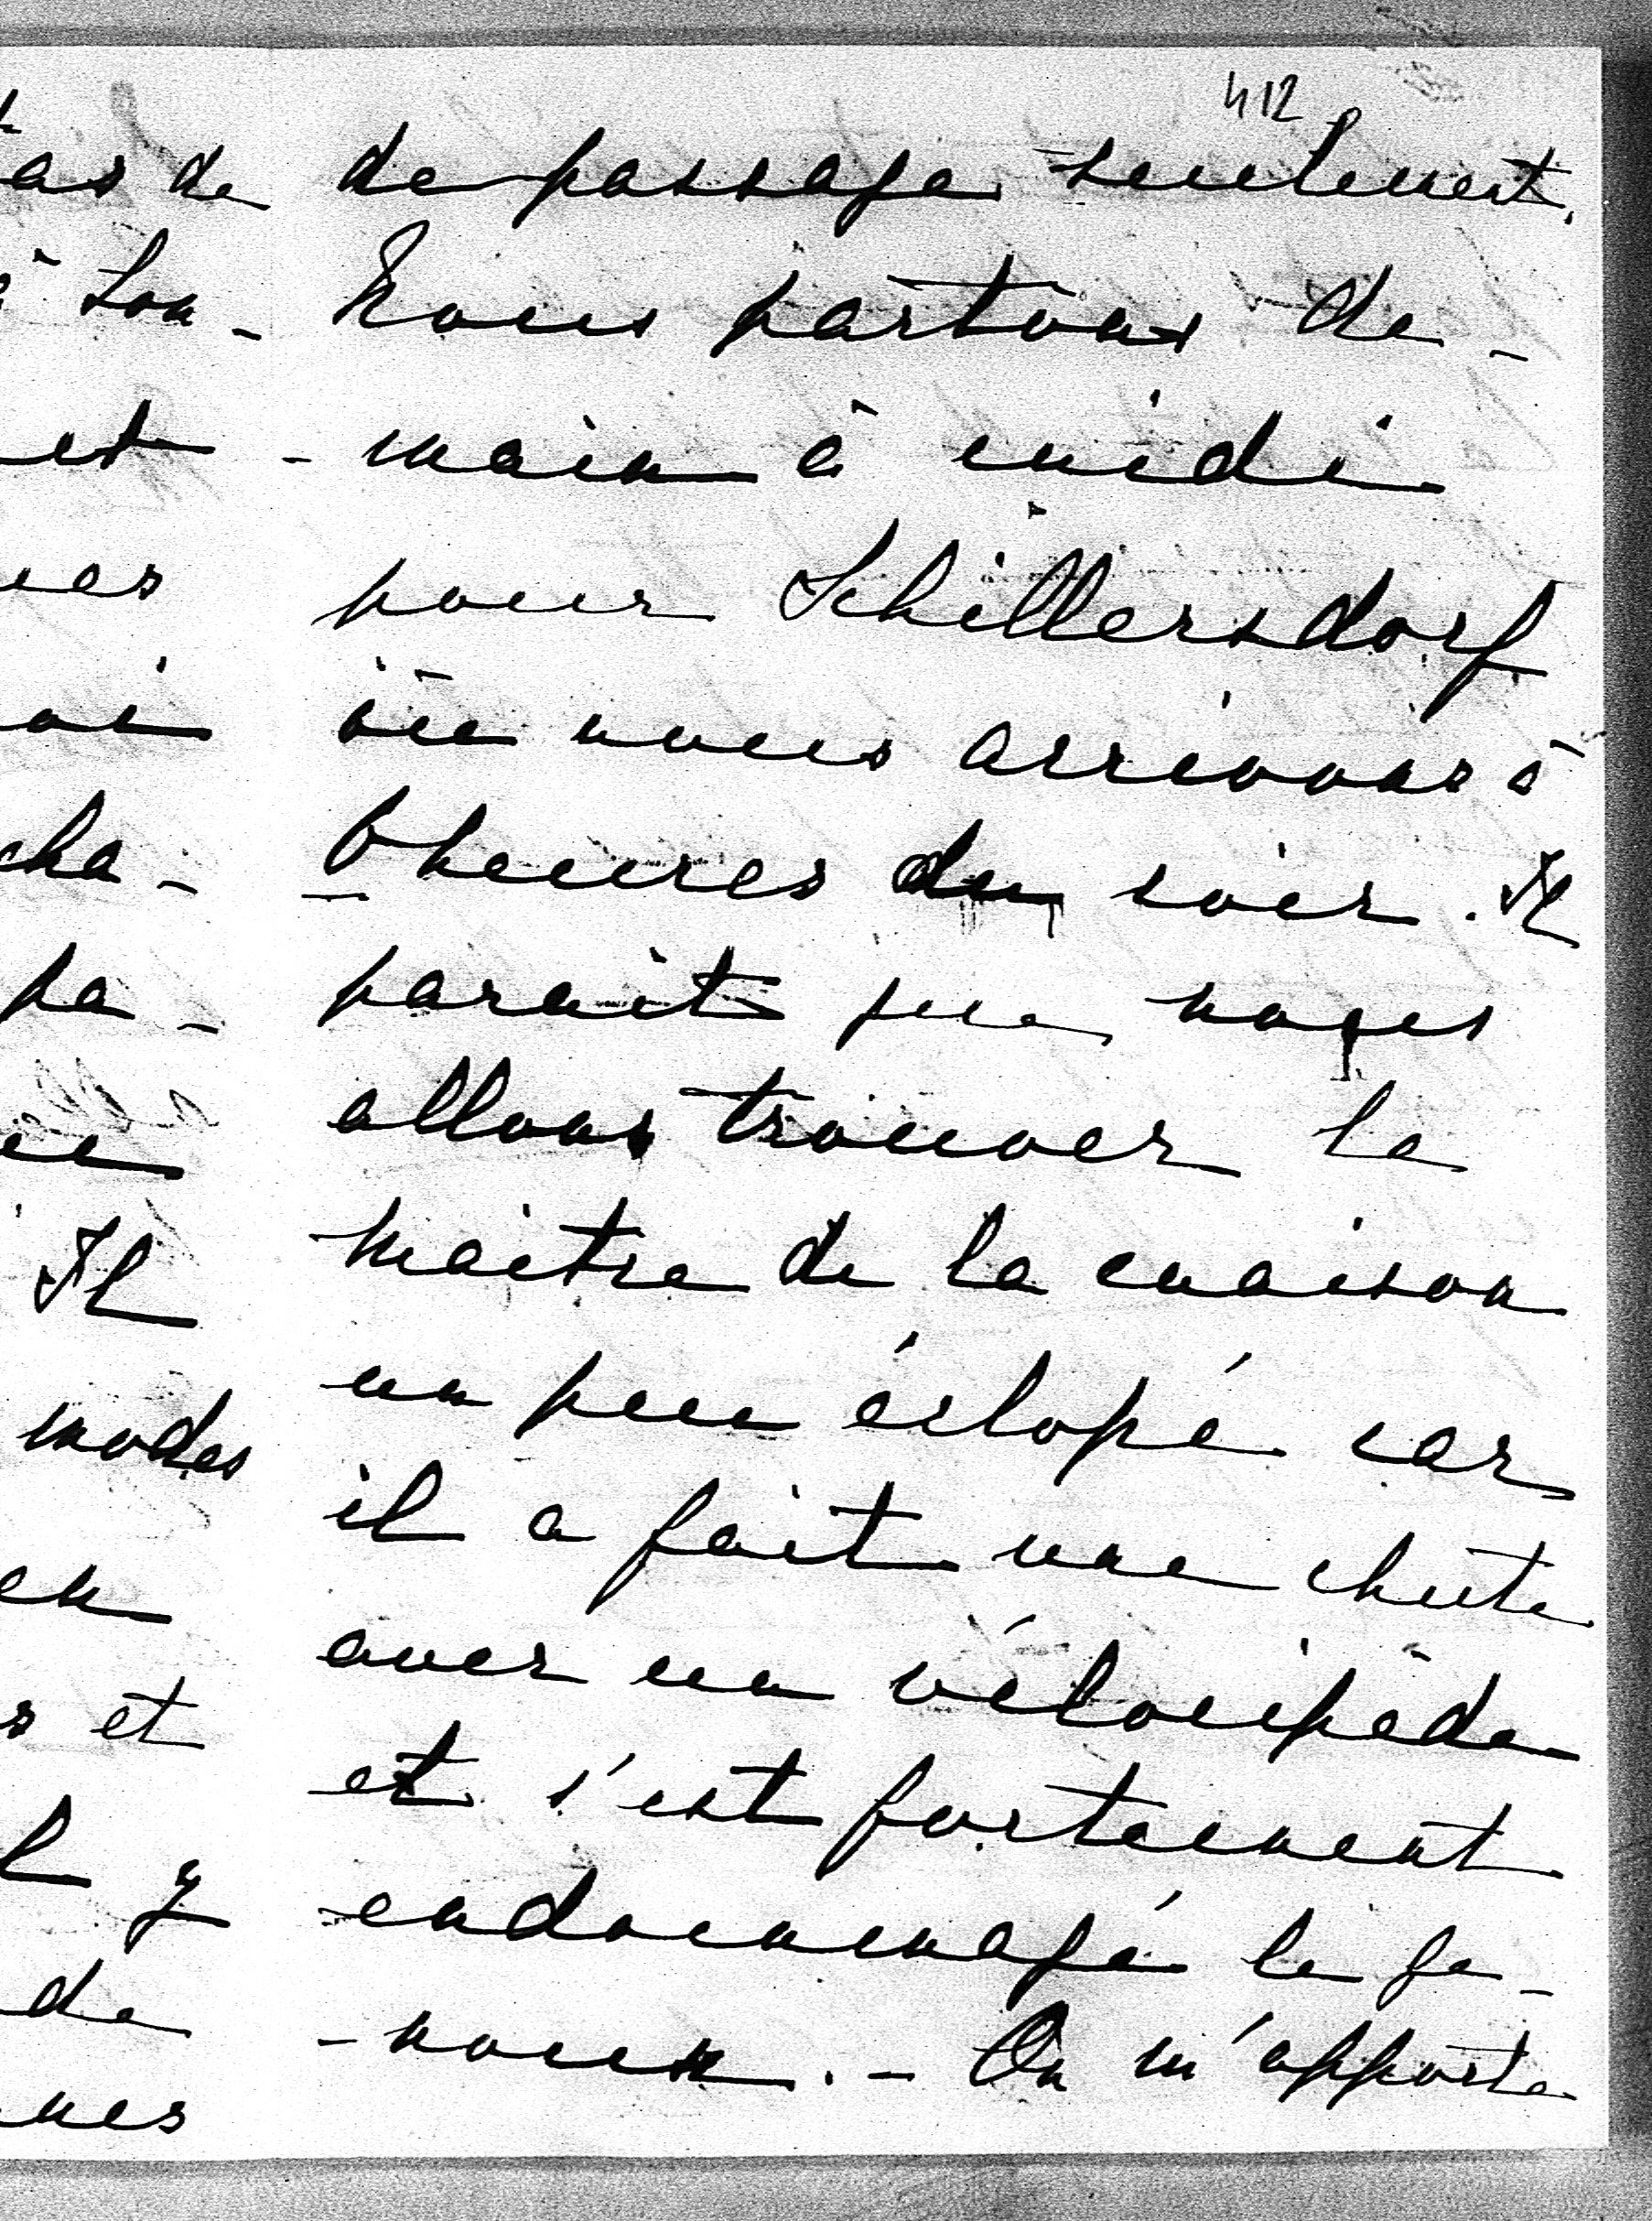 412
de passage seulement.
Nous partons de-
-main à midi
pour Schillersdorf
où nous arrivons à
6 heures du soir. Il
parait que nous
allons trouver le
maitre de la maison
un peu éclopé car
il a fait une chute
avec un vélocipède
et s'est fortement
endommagé le ge-
-noux. - On m'apporte
as de
à Lon-
et
nes
oi
cha-
pa-
Il
modes
en
s et
l y
de
nes